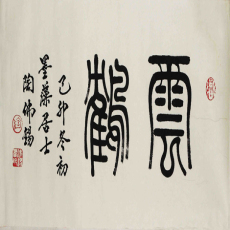 雲鶴
己卯冬初
墨藥居士
陶佛錫